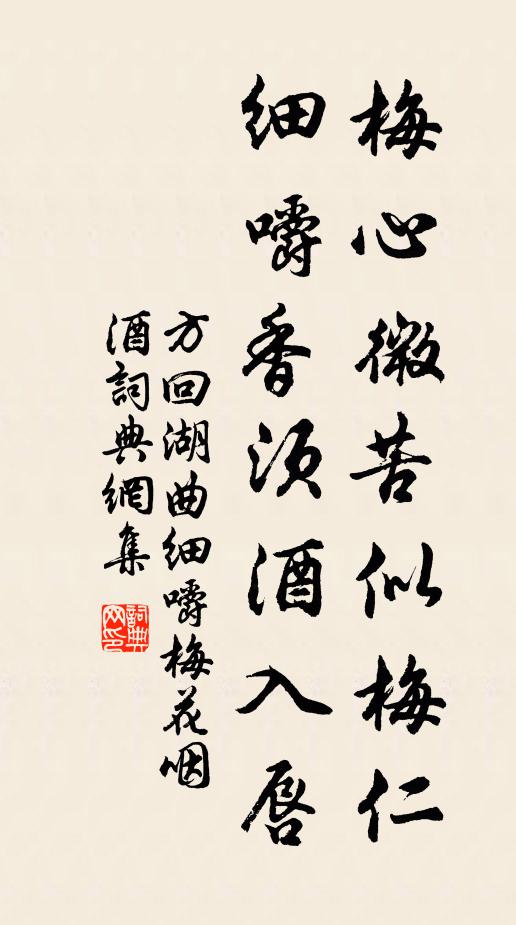 梅心微苦似梅仁
细嚼香须酒入唇
方回湖曲细嚼梅花咽
酒词典網集
詞典網印